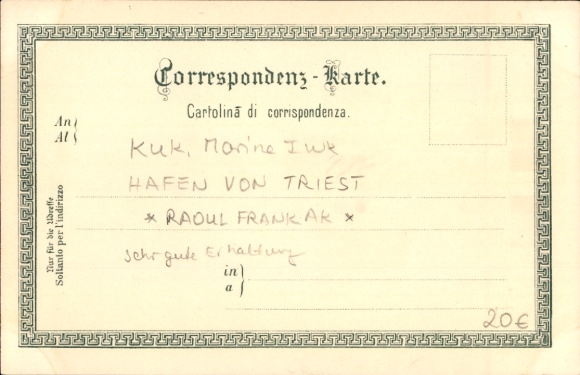 Correspondenz-Karte.
Cartolina di corrispondenza.
An
Al
KuK. Marine
HAFEN VON TRIEST
* RAOUL FRANK AK *
sehr gute Erhaltung
in
a
Nur für die Adresse
Soltanto per l'indirizzo
20€